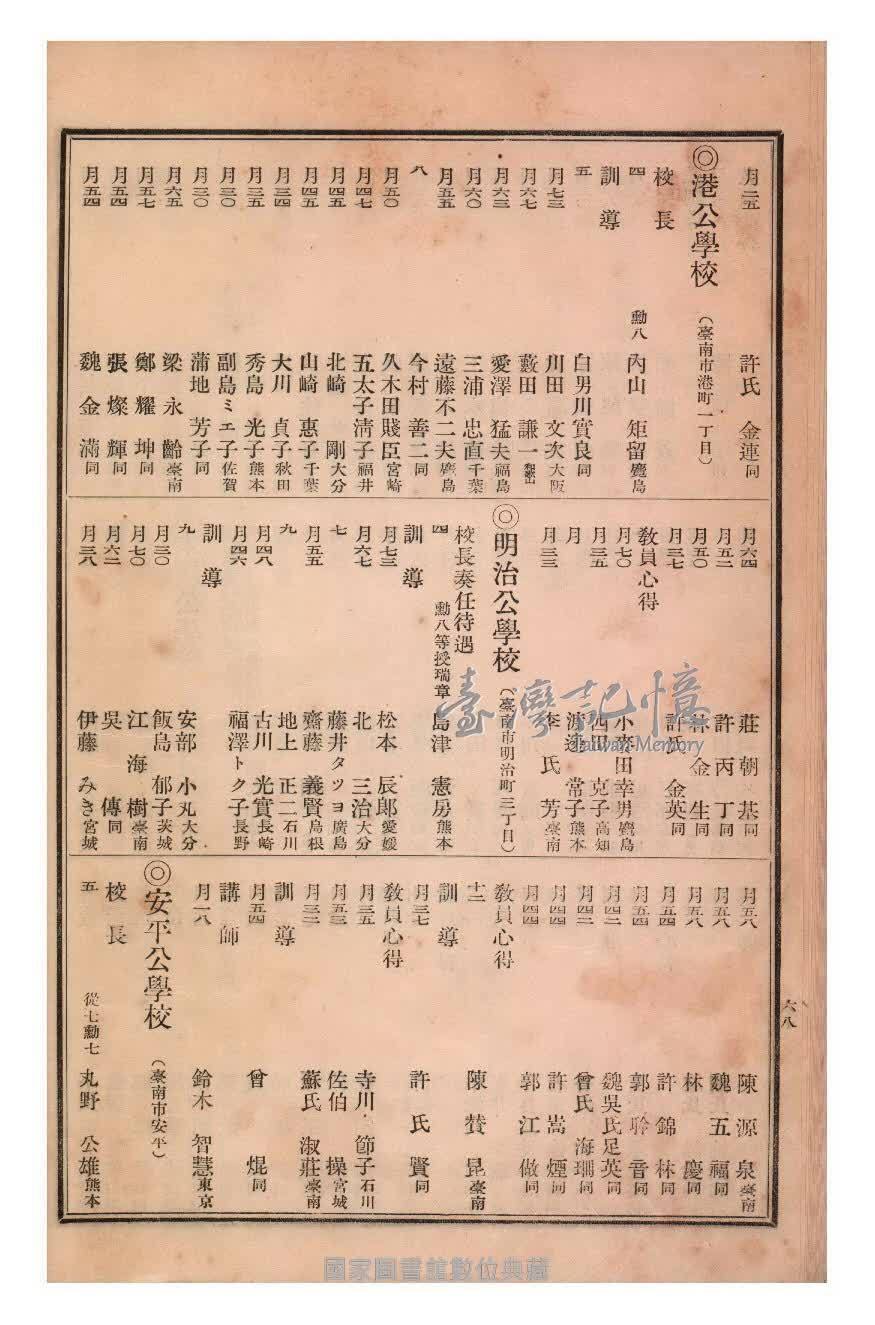 月二五 許氏 金連同
◎港公學校 (臺南市港町一丁目)
校長
四 勳八 內山 矩留鹿島
訓導
五 白男川實良同
月七三 川田 文次大阪
月六七 藪田 謙一和歌山
月六三 愛澤 猛夫福島
月六〇 三浦 忠直千葉
月五五 遠藤不二夫鹿島
八 今村 善二同
月五〇 久木田賤臣宮崎
月四七 五太子淸子福井
月四五 北崎 剛大分
月四五 山崎 惠子千葉
月三四 大川 貞子秋田
月三五 秀島 光子熊本
月三〇 副島ミエ子佐賀
月三〇 蒲地 芳子同
月六五 梁永齡臺南
月五七 鄭耀坤同
月五四 張燦輝同
月五四 魏金滿同
月六四 莊朝基同
月五二 許丙丁同
月五〇 林金生同
月三七 許氏 金英同
教員心得
月七〇 小麥田幸男鹿島
月三五 西田 克子高知
月 渡邊 常子熊本
月三三 李氏 芳臺南
◎明治公學校 (臺南市明治町三丁目)
校長奏任待遇
四 勳八等授瑞章 島津 憲房熊本
訓導
月七三 松本 辰郎愛媛
月六七 北 三治大分
七 藤井タツヨ廣島
月五五 齋藤 義賢島根
九 地上 正二石川
月四八 古川 光實長崎
月四六 福澤トク子長野
訓導
九 安部 小丸大分
月三〇 飯島 郁子茨城
月七〇 江海樹臺南
月六二 吳 傳同
月三八 伊藤 みき宮城
月五八 陳源泉臺南
月五八 魏五福同
月五八 林 慶同
月五四 許錦林同
月五四 郭聆音同
月四二 魏吳氏足英同
月四二 曾氏 海珊同
月四四 許嵩煙同
月四四 郭江做同
教員心得
十二 陳贊昆臺南
訓導
月三七 許氏 賢同
教員心得
月三五 寺川 節子石川
月五三 佐伯 操宮城
月三二 蘇氏 淑莊臺南
訓導
月五四 曾 焜同
講師
月一八 鈴木 智慧東京
◎安平公學校 (臺南市安平)
校長
五 從七勳七 丸野 公雄熊本
六八
臺灣記憶
Taiwan Memory
國家圖書館數位典藏